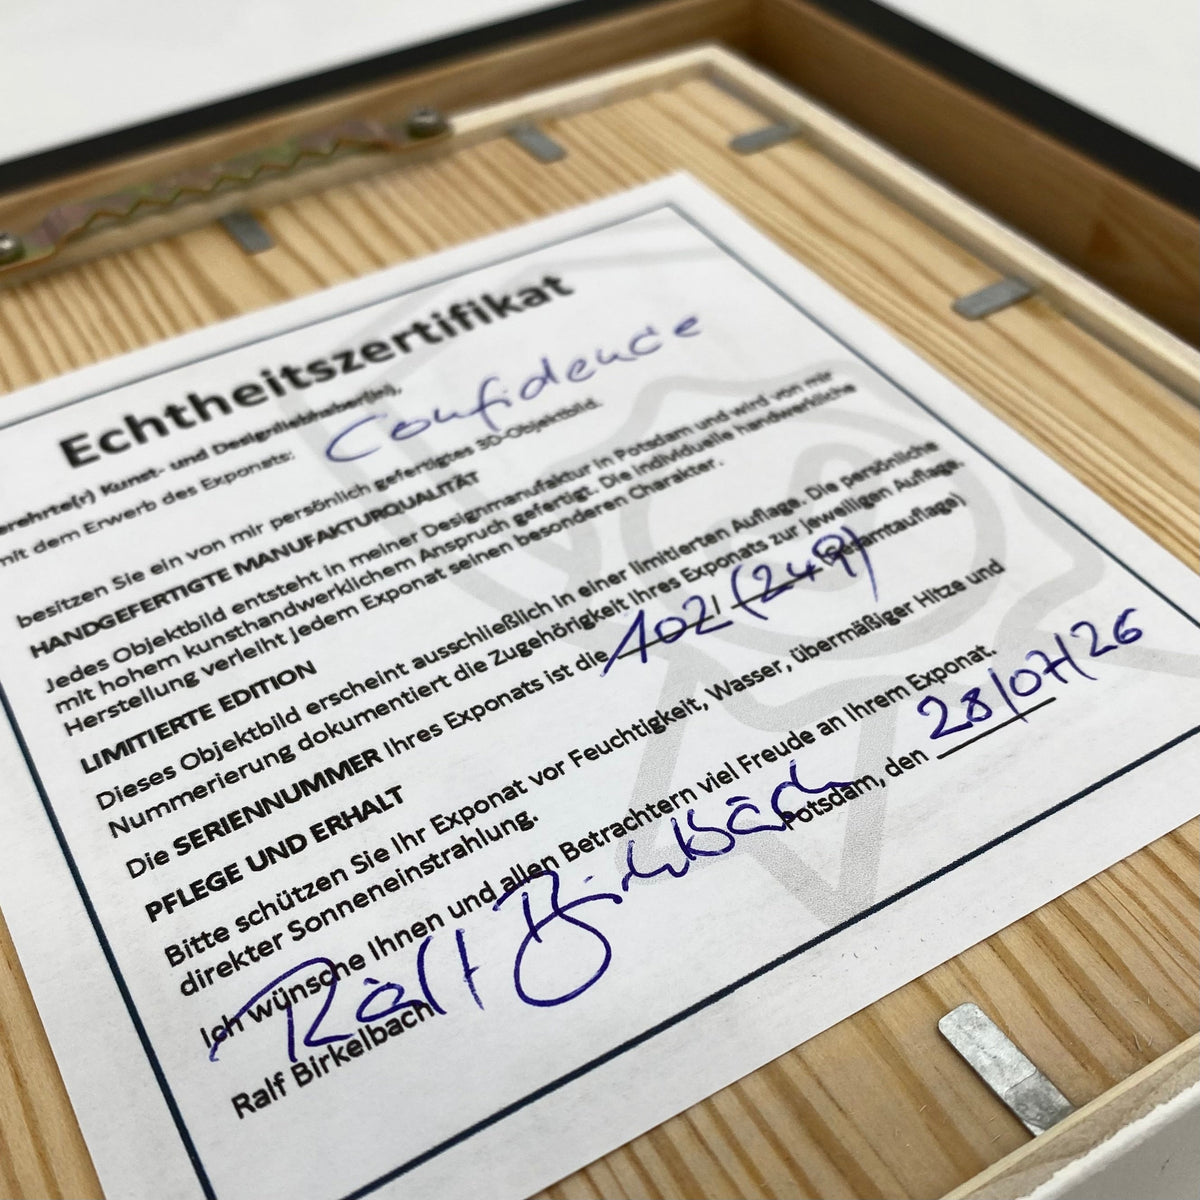 Echtheitszertifikat
erehrte(r) Kunst- und Designliebhaber(in),
mit dem Erwerb des Exponats: Confidence
besitzen Sie ein von mir persönlich gefertigtes 3D-Objektbild.
HANDGEFERTIGTE MANUFAKTURQUALITÄT
Jedes Objektbild entsteht in meiner Designmanufaktur in Potsdam und wird von mir
mit hohem kunsthandwerklichem Anspruch gefertigt. Die individuelle handwerkliche
Herstellung verleiht jedem Exponat seinen besonderen Charakter.
LIMITIERTE EDITION
Dieses Objektbild erscheint ausschließlich in einer limitierten Auflage. Die persönliche
Nummerierung dokumentiert die Zugehörigkeit Ihres Exponats zur jeweiligen Auflage.
Die SERIENNUMMER Ihres Exponats ist die 102 / (249) Gesamtauflage)
PFLEGE UND ERHALT
Bitte schützen Sie Ihr Exponat vor Feuchtigkeit, Wasser, übermäßiger Hitze und
direkter Sonneneinstrahlung.
Ich wünsche Ihnen und allen Betrachtern viel Freude an Ihrem Exponat.
Potsdam, den 28/07/26
Ralf Birkelbach
Ralf Birkelbach